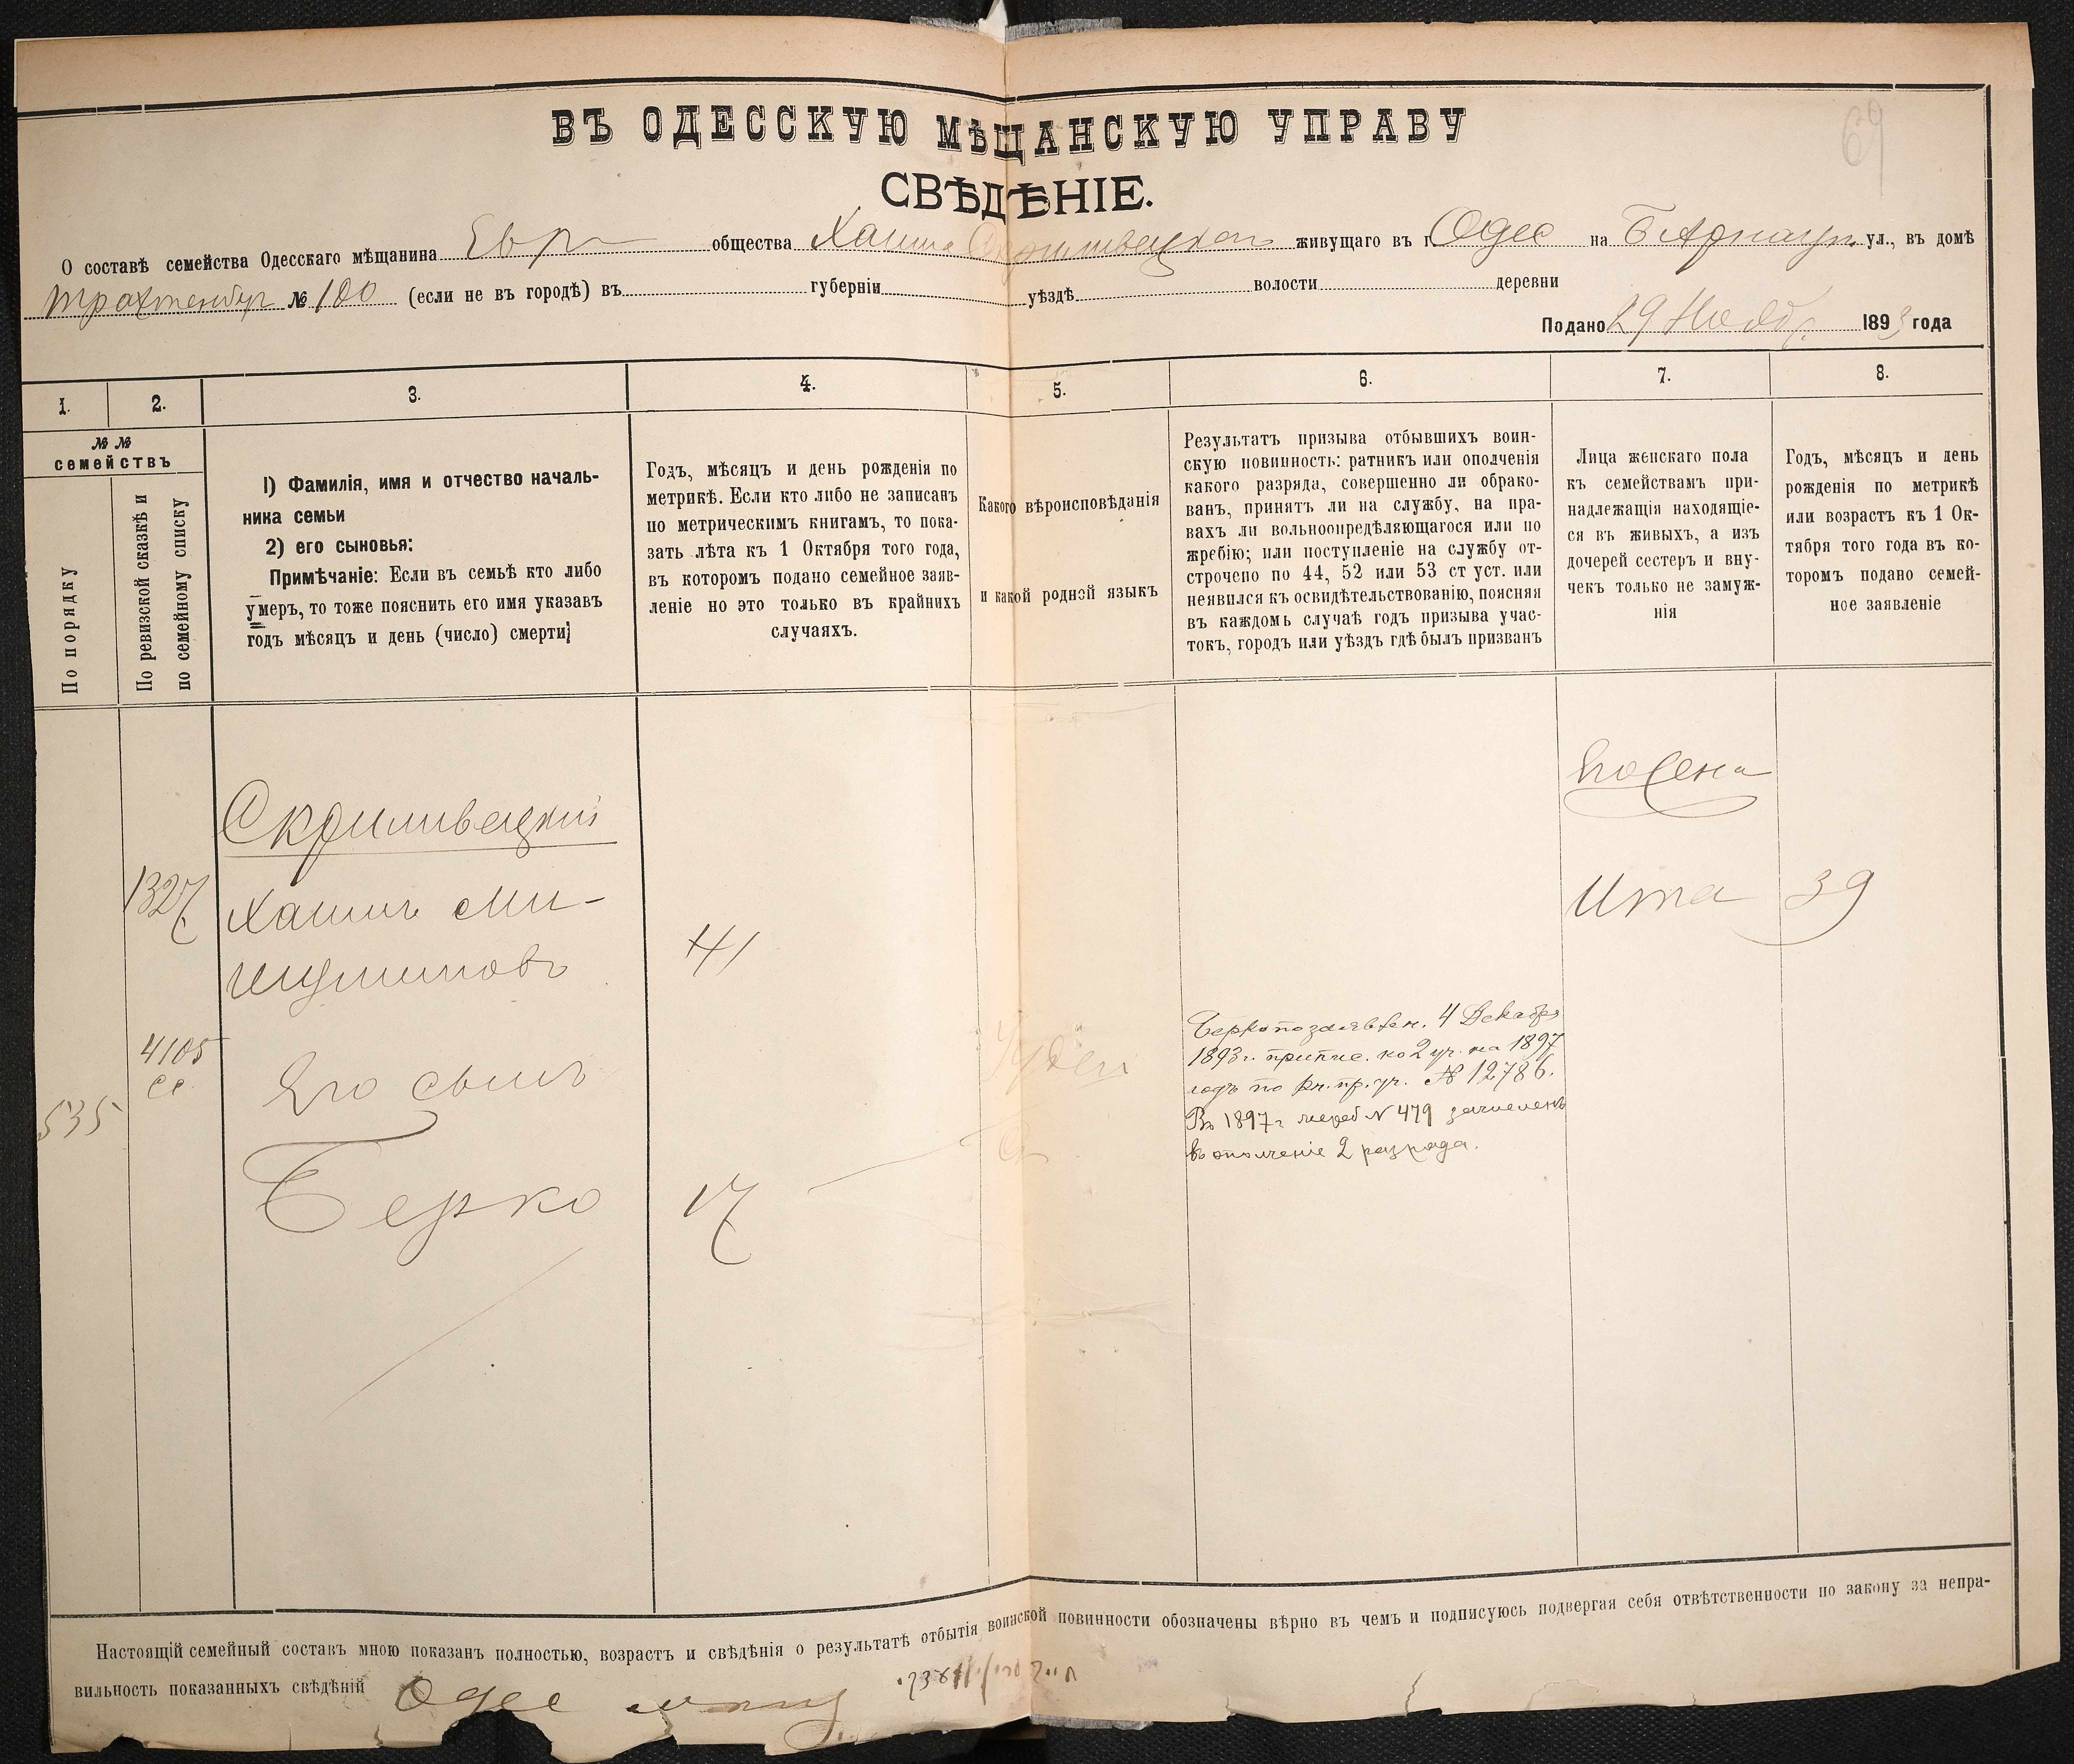 69
ВЪ ОДЕССКУЮ МѢЩАНСКУЮ УПРАВУ
СВѢДѢНІЕ.
О составѣ семейства Одесскаго мѣщанина Евр общества Хаима Скришевецкаго живущаго въ г. Одес на Б Арнаут. ул., въ домѣ
Трахтенберг № 100 (если не въ городѣ) въ губерніи уѣздѣ волости деревни
Подано 29 Ноябр. 1893 года
1. 2. 3. 4. 5. 6. 7. 8.
№ №
семействъ
По порядку
По ревизской сказкѣ и
по семейному списку
1) Фамилія, имя и отчество началь-
ника семьи
2) его сыновья:
Примѣчаніе: Если въ семьѣ кто либо
умеръ, то тоже пояснить его имя указавъ
годъ мѣсяцъ и день (число) смерти;
Годъ, мѣсяцъ и день рожденія по
метрикѣ. Если кто либо не записанъ
по метрическимъ книгамъ, то пока-
зать лѣта къ 1 Октября того года,
въ которомъ подано семейное заяв-
леніе но это только въ крайнихъ
случаяхъ.
Какого вѣроисповѣданія
и какой родной языкъ
Результатъ призыва отбывшихъ воин-
скую повинность: ратникъ или ополченія
какого разряда, совершенно ли обрако-
ванъ, принятъ ли на службу, на пра-
вахъ ли вольноопредѣляющагося или по
жребію; или поступленіе на службу от-
строчено по 44, 52 или 53 ст уст. или
неявился къ освидѣтельствованію, поясняя
въ каждомъ случаѣ годъ призыва учас-
токъ, городъ или уѣздъ гдѣ былъ призванъ
Лица женскаго пола
къ семействамъ при-
надлежащія находящіе-
ся въ живыхъ, а изъ
дочерей сестеръ и вну-
чекъ только не замуж-
нія
Годъ, мѣсяцъ и день
рожденія по метрикѣ
или возрастъ къ 1 Ок-
тября того года въ ко-
торомъ подано семей-
ное заявленіе
Его жена
1327
Хаимъ Ми-
41
Ита 39
4105
сс
535
Его сынъ
Берко
17
Іудей
Берко по заявлен. 4 Декабря
1893 г. припис. ко 2 уч. на 1897
годъ по кн. пр. уч. № 12786.
Въ 1897 г. жереб № 479 зачисленъ
въ ополченіе 2 разряда.
Настоящій семейный составъ мною показанъ полностью, возрастъ и свѣдѣнія о результатѣ отбытія воинской повинности обозначены вѣрно въ чемъ и подписуюсь подвергая себя отвѣтственности по закону за непра-
вильность показанныхъ свѣдѣній Одес мѣщ